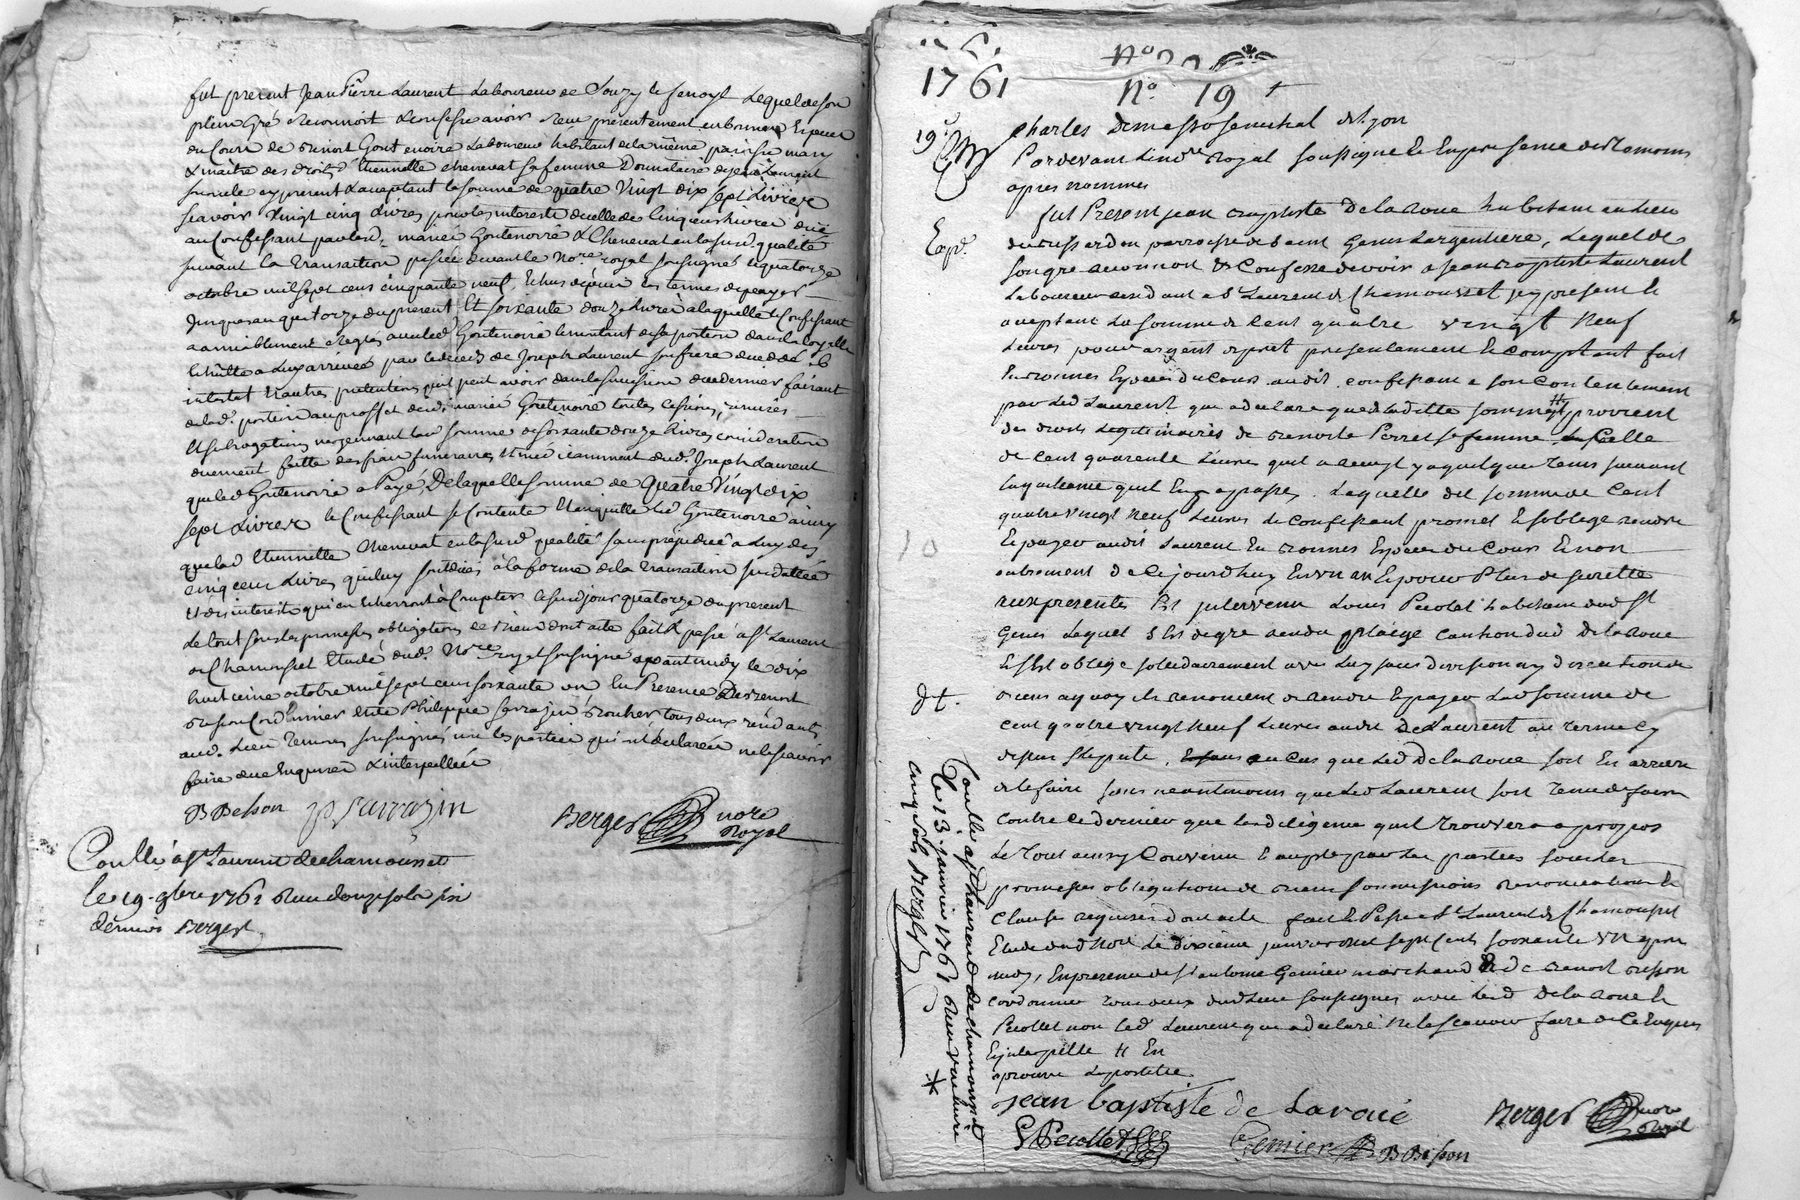 fut present Jean Pierre Laurent Laboureur de Souzy le jenoyl Lequel de son
plein gré reconnoit & confesse avoir reçu présentement en bonnes Especes
du Cours de Benoit Gontenoire Laboureur habitant de la même paroisse mary
& maitre des droits d'Etiennette chenevat sa femme Donnataire de Laurent
icy present & acceptant la somme de quatre Vingt dix sept Livres
scavoir Vingt cinq Livres pour les interests de celle de cinq cens livres düe
au Confessant par led. mariés Goutenoire & Chenevat en lad. qualité
suivant la transaction passée devant le No.re royal soussigné le quatorze
octobre mil sept cens cinquante neuf, Echus depuis les termes de payer
jusques au quatorze du present Et soixante douze Livres a laquelle le Confessant
a amiablement reglés avec led Goutenoire le montant de sa portion dans la
échutte a Luy arrivée par le deced de Joseph Laurent son frere decedé ab
intestat & autres pretentions qu'il peut avoir dans la succession du dernier faisant
de lad. portion au proffit desd. mariés Goutenoire toutes cessions, remises
Et subrogations moyennant lad somme de soixante douze livres consideration
duement faitte des frais funeraires dud. Joseph Laurent
que led Goutenoire a Payé, De laquelle somme de Quatre Vingt dix
sept Livres le Confessant se Contente & en quitte led Goutenoire ainsy
que lad Etiennette Chenevat en lad qualité sans préjudice a Luy des
cinq cens Livres qui luy sont dües a la forme de la transaction susdattée
Et des interests qui en écherront à Compter de ced jour quatorze du present
le tout sous les promesses obligations de biens dont acte fait & passé a St Laurent
de Chamousset Etude dud. No.re royal soussigné avant midy le dix
huit eme octobre mil sept cens soixante un En Presence de Benoit
Besson Cordonnier & de Philippe Sarrazin Boucher tous deux residants
aud. Lieu temoins soussignés non les parties qui ont declarées ne le scavoir
faire de ce Enquises & interpellées
B Besson P Sarrazin Berger nore Royal
Conllé a St Laurent de chamousset
le 19. 9bre 1761 Reçu douze sols six
deniers Berger
1761
No. 19
19e
Charles De masso senechal de Lyon
Pardevant Le No.re Royal soussigné & En presence des Temoins
apres nommes
Exp.é
fut Present jean Baptiste De la Roue habitant au Lieu
du Bussard en parroisse de Saint Genis Largentiere, Lequel de
son gre reconnoit & Confesse devoir a jean Baptiste Laurent
Laboureur residant a St Laurent de Chamousset icy present &
acceptant La somme de Cent quatre vingt Neuf
Livres pour argent de pret presentement & comptant fait
En bonnes Especes du Cours audit confessant a son Contentement
par Led Laurent que a declare que de la ditte somme # provient
des droits Legitimaires de Benoite Perret sa femme celle
de cent quarente Livres quil a recuyt y a quelque Tems suivant
la quittance quil En a passe, Laquelle dit somme de Cent
quatre vingt Neuf Livres Le confessant promet & soblige rendre
& payer audit Laurent En bonnes Especes du Cours & non
10
autrement De Ce jourdhuy En un an & pour Plus de surette
aux presentes Est intervenu Louis Pecollet habitant dud St
Genis Lequel de gre a rendu pleige Caution dud De la Roue
& sest oblige solidairement avec Luy sans division ny discution de
biens a quoy ils renoncent de rendre & payer Lad somme de
dt.
cent quatre vingt Neuf Livres audit Laurent au terme cy
dessus stipule, au Cas que Led De la Roue soit En arriere
de le faire sans neantmoins que Led Laurent soit Tenu de faire
contre Ce dernier que les diligence quil trouvera a propos
Le Tout ainsy Convenu & accepte par Les parties sous Leur
promesses obligations de Biens soumissions Renonciations &
Clause requises dont acte fait & Passe a St Laurent de Chamousset
Etude dud No.re Le dixieme janvier mil sept Cents soixante un apres
midy, En presence de St antoine Gemier marchand & de Benoit Besson
Cordonnier tous deux dud Lieu soussignes avec Led De la Roue &
Pecollet non Led Laurent que a declaré Ne le scavoir faire de Ce Enquis
& interpelle # En
aprouvé Lapostille
Conllé a St Laurent de chamousset
Le 13. janvier 1761 Reçu
cinq sols Berger
*
jean baptiste de Laroüe Berger nore Royal
L Pecollet Gemier B Besson